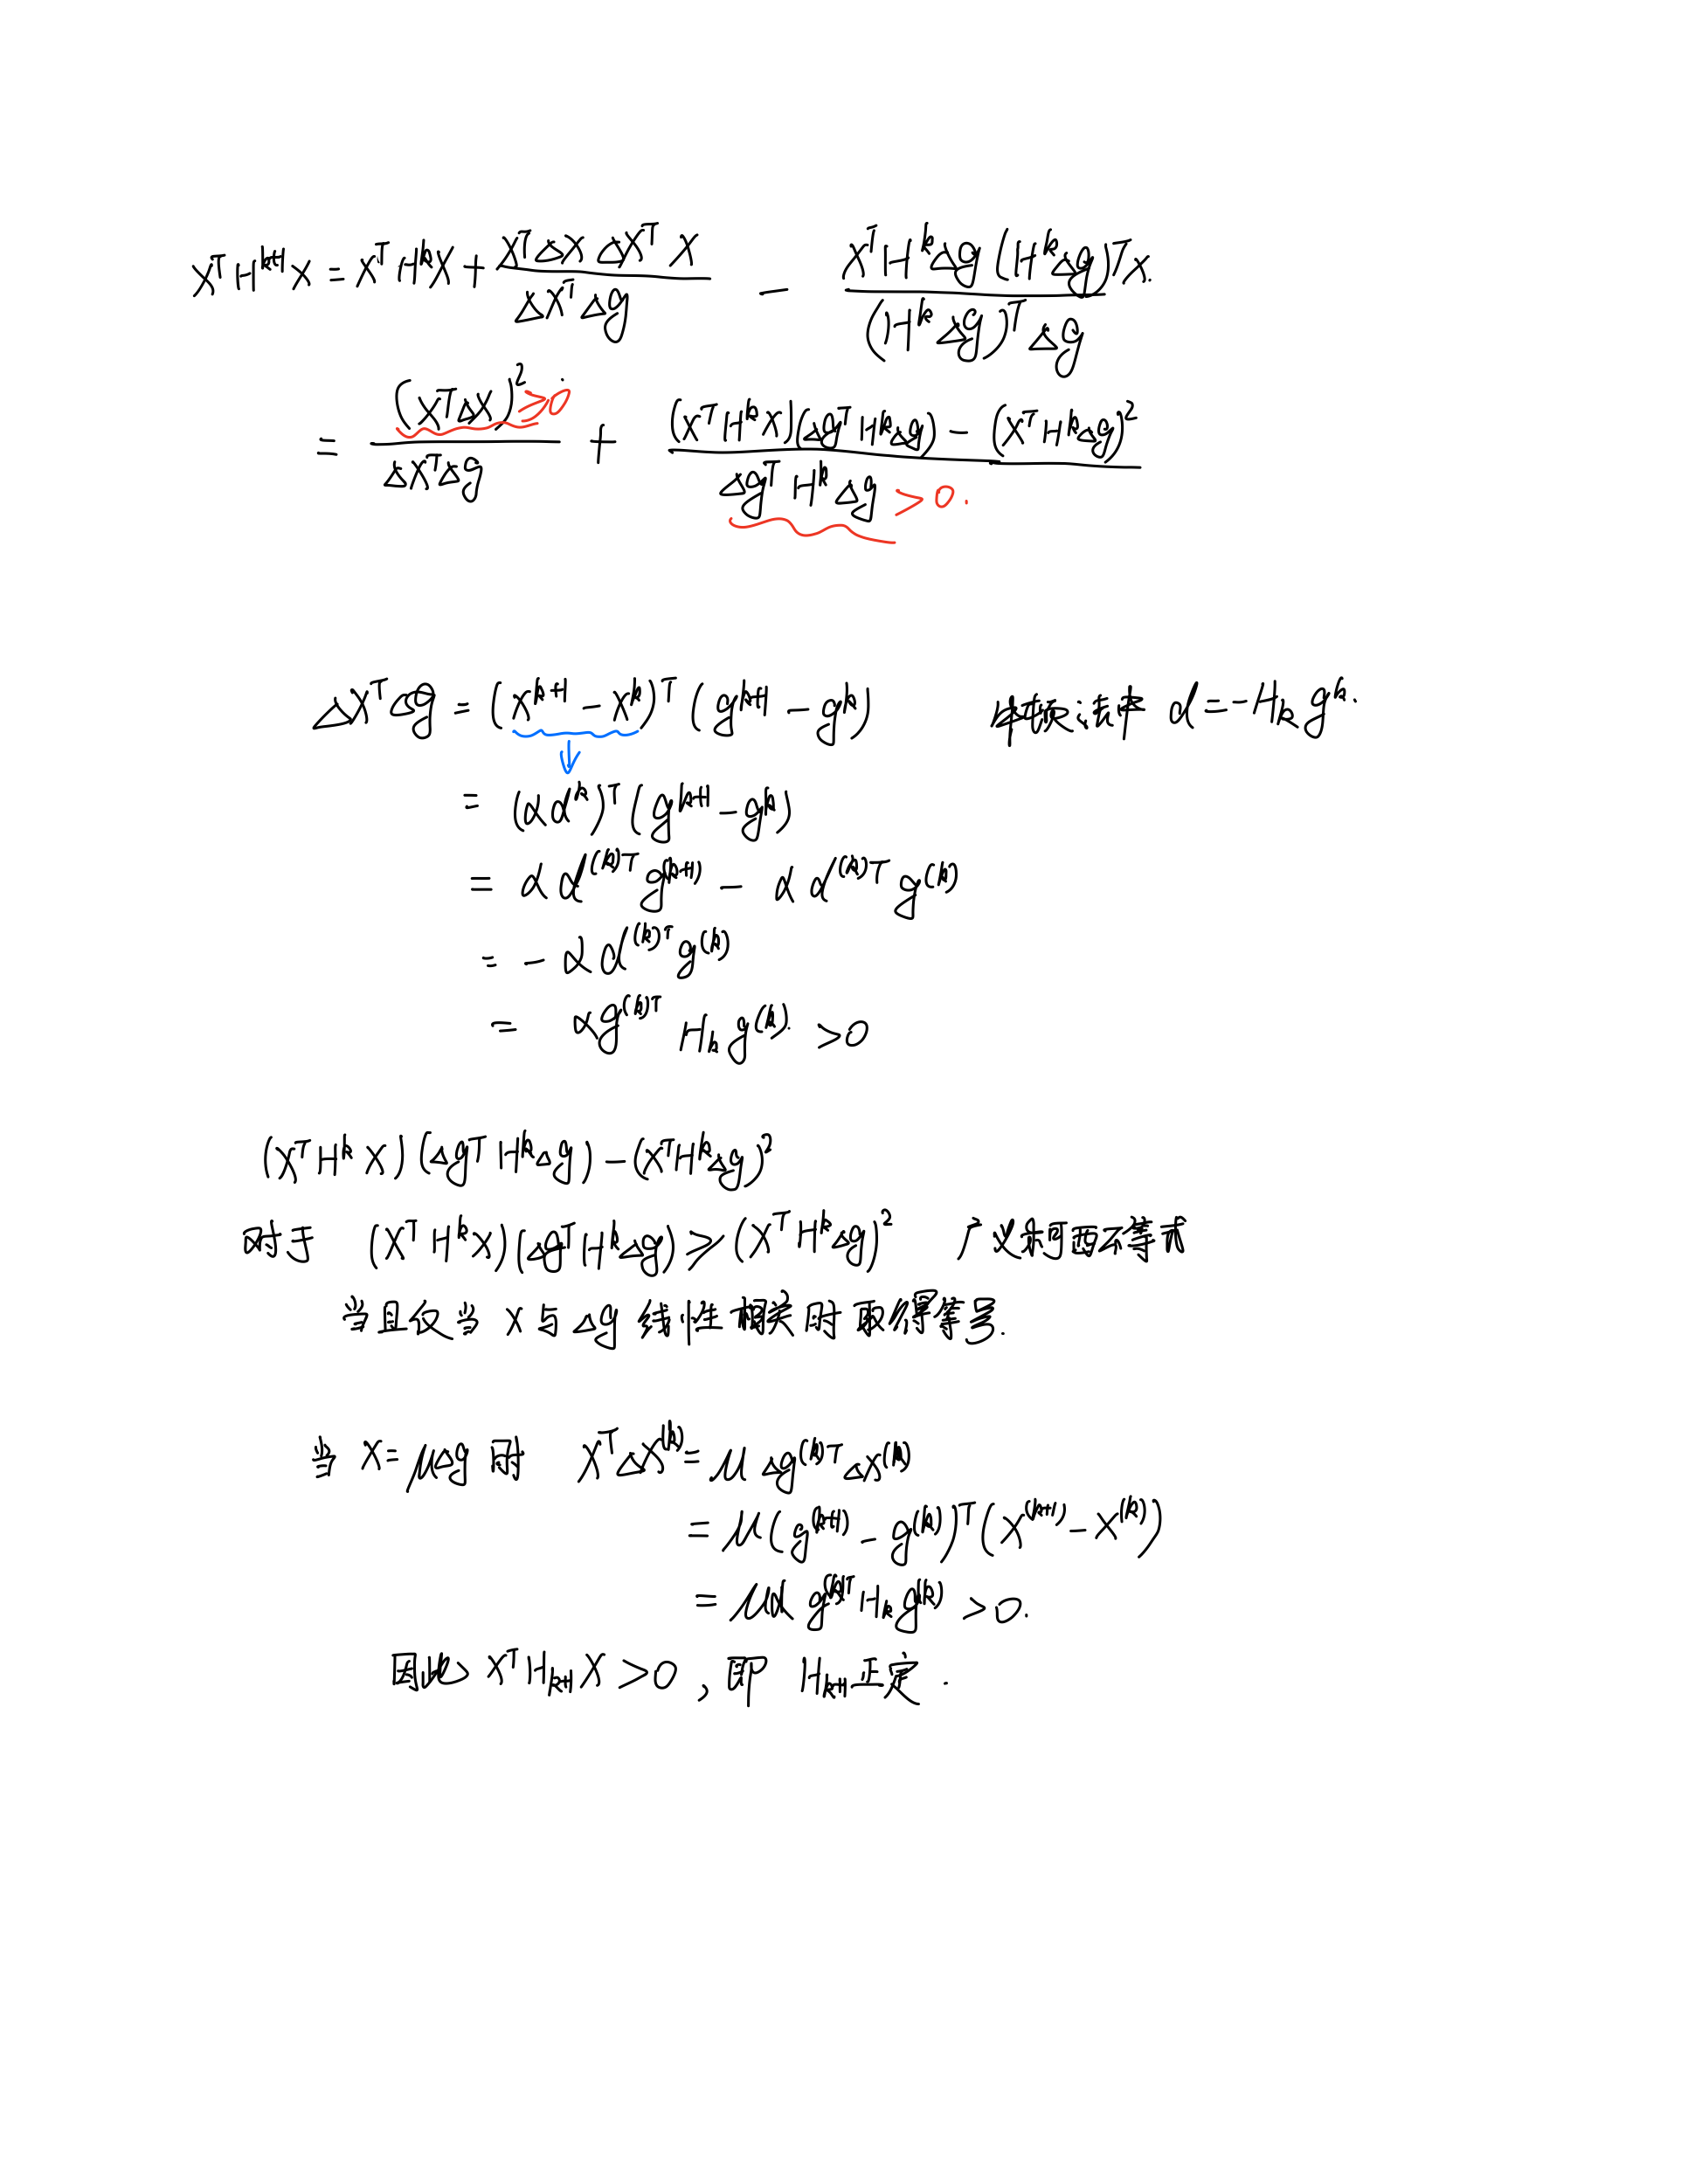 X^T H^{k+1} X = X^T H^k X + \frac{X^T ΔX ΔX^T X}{ΔX^T Δg} - \frac{X^T H^k Δg (H^k Δg)^T X.}{(H^k Δg)^T Δg}
= \frac{(X^T ΔX)^2 ≥0}{ΔX^T Δg} + \frac{(X^T H^k X)(Δg^T H^k Δg) - (X^T H^k Δg)^2}{Δg^T H^k Δg >0.}
ΔX^T Δg = (X^{k+1} - X^k)^T (g^{k+1} - g^k) 牛顿法中 d = -H_k g^k.
↓
= (αd^k)^T (g^{k+1} - g^k)
= αd^{(k)T} g^{(k+1)} - αd^{(k)T} g^{(k)}
= -αd^{(k)T} g^{(k)}
= αg^{(k)T} H_k g^{(k)}. >0
(X^T H^k X)(Δg^T H^k Δg) - (X^T H^k Δg)^2
对于 (X^T H^k X)(Δg^T H^k Δg) ≥ (X^T H^k Δg)^2 广义柯西不等式
当且仅当 X 与 Δg 线性相关时取得等号.
当 X=μΔg 时 X^T ΔX^{(k)} = μ Δg^{(k)T} ΔX^{(k)}
= μ(g^{(k+1)} - g^{(k)})^T (X^{(k+1)} - X^{(k)})
= μα g^{(k)T} H_k g^{(k)} >0.
因此 X^T H_{k+1} X >0, 即 H_{k+1} 正定.